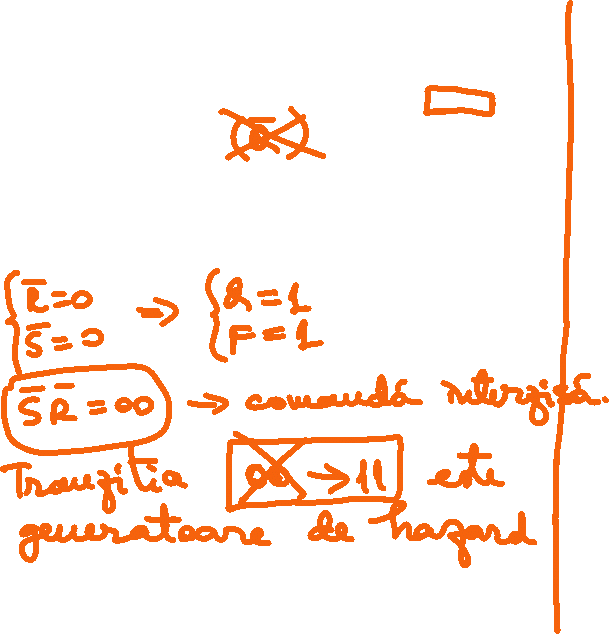 R̅=0 → Q=1
S̅=0 F=1
S̅R̅=00 → comandă interzisă.
Tranziția 00→11 este
generatoare de hazard